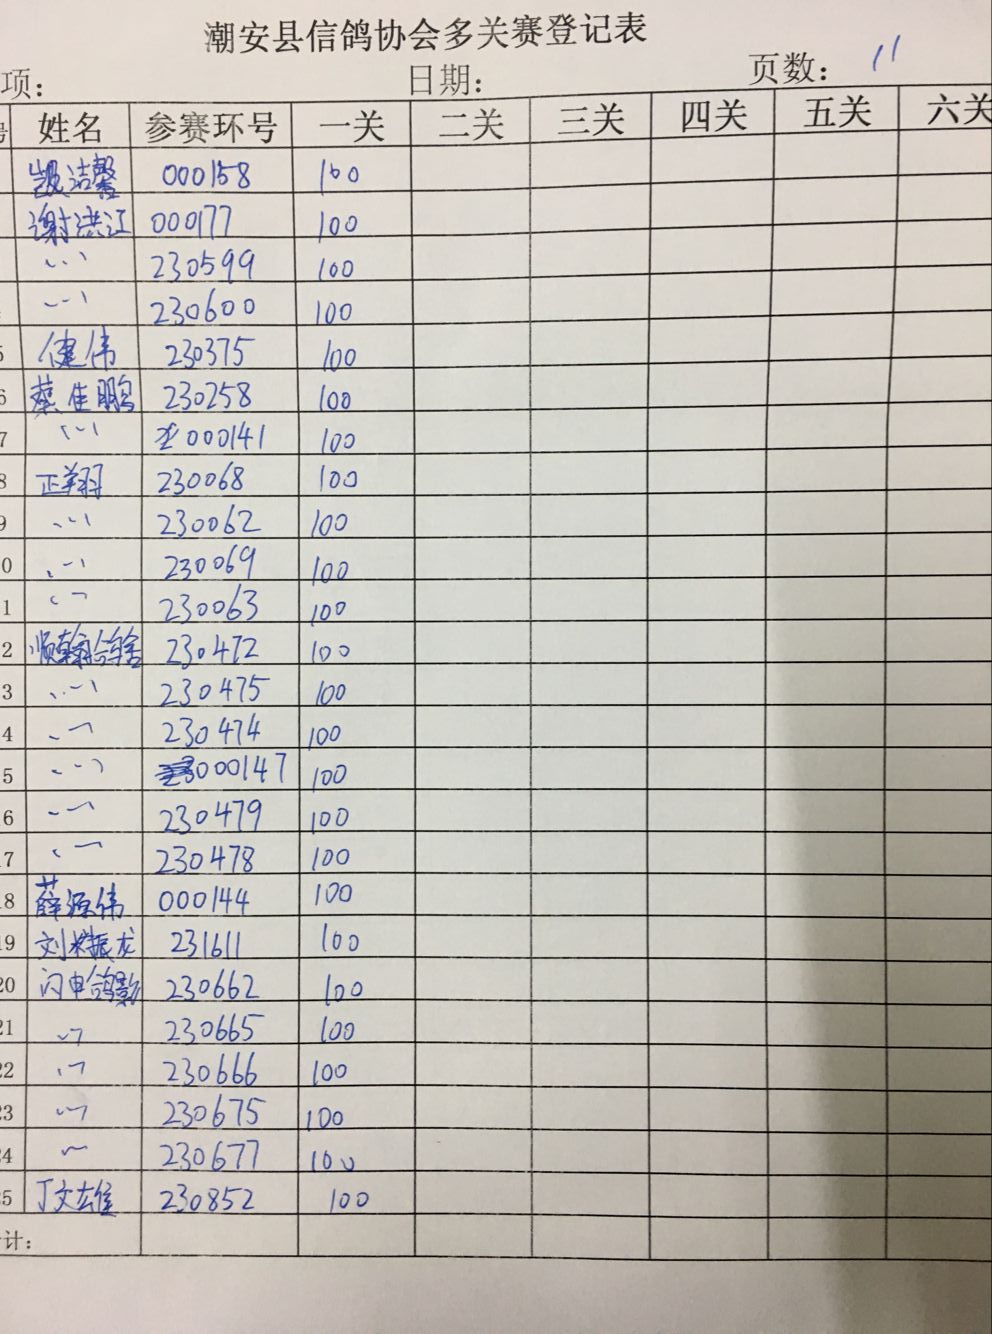 潮安县信鸽协会多关赛登记表
项: 日期: 页数: 11
号 姓名 参赛环号 一关 二关 三关 四关 五关 六关
洁馨 000158 100
谢洪江 000177 100
〃 230599 100
〃 230600 100
5 健伟 230375 100
6 蔡佳鹏 230258 100
7 〃 000141 100
8 正翔 230068 100
9 〃 230062 100
0 〃 230069 100
1 〃 230063 100
2 顺翰鸽舍 230472 100
3 〃 230475 100
4 〃 230474 100
5 〃 000147 100
6 〃 230479 100
7 〃 230478 100
18 薛源伟 000144 100
19 刘振龙 231611 100
20 闪电鸽影 230662 100
21 〃 230665 100
22 〃 230666 100
23 〃 230675 100
24 〃 230677 100
25 丁文雄 230852 100
计: